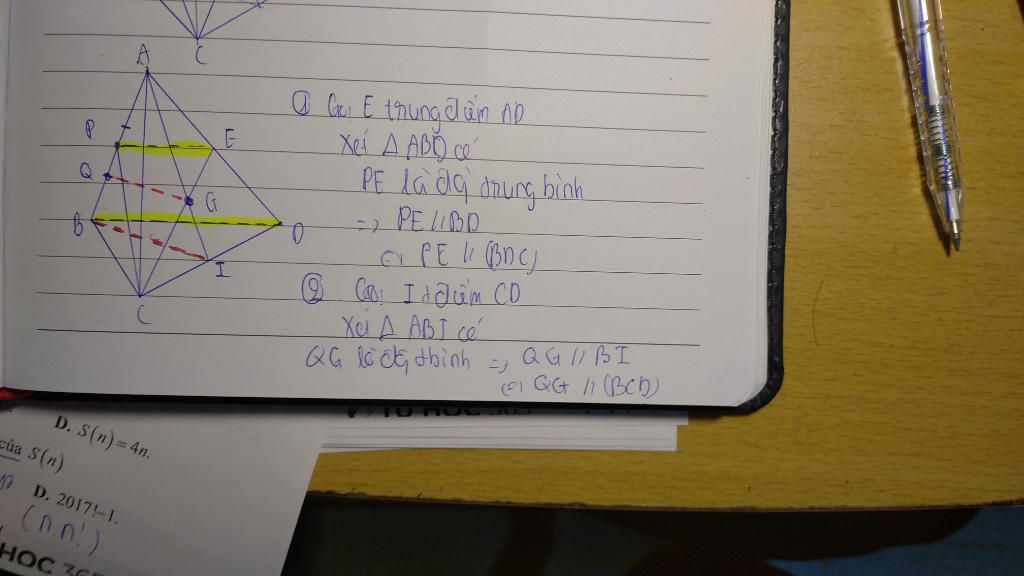 C
A
P
E
Q
G
B
D
I
C
① Gọi E trung điểm AD
Xét Δ ABD có
PE là đg trung bình
=> PE // BD
PE // (BDC)
② Gọi I đ điểm CD
Xét Δ ABI có
QG là đg tbình => QG // BI
QG // (BCD)
TỰ HỌC 365
D. S(n)=4n.
của S(n)
D. 2017!−1.
(n.n!)
HỌC 365